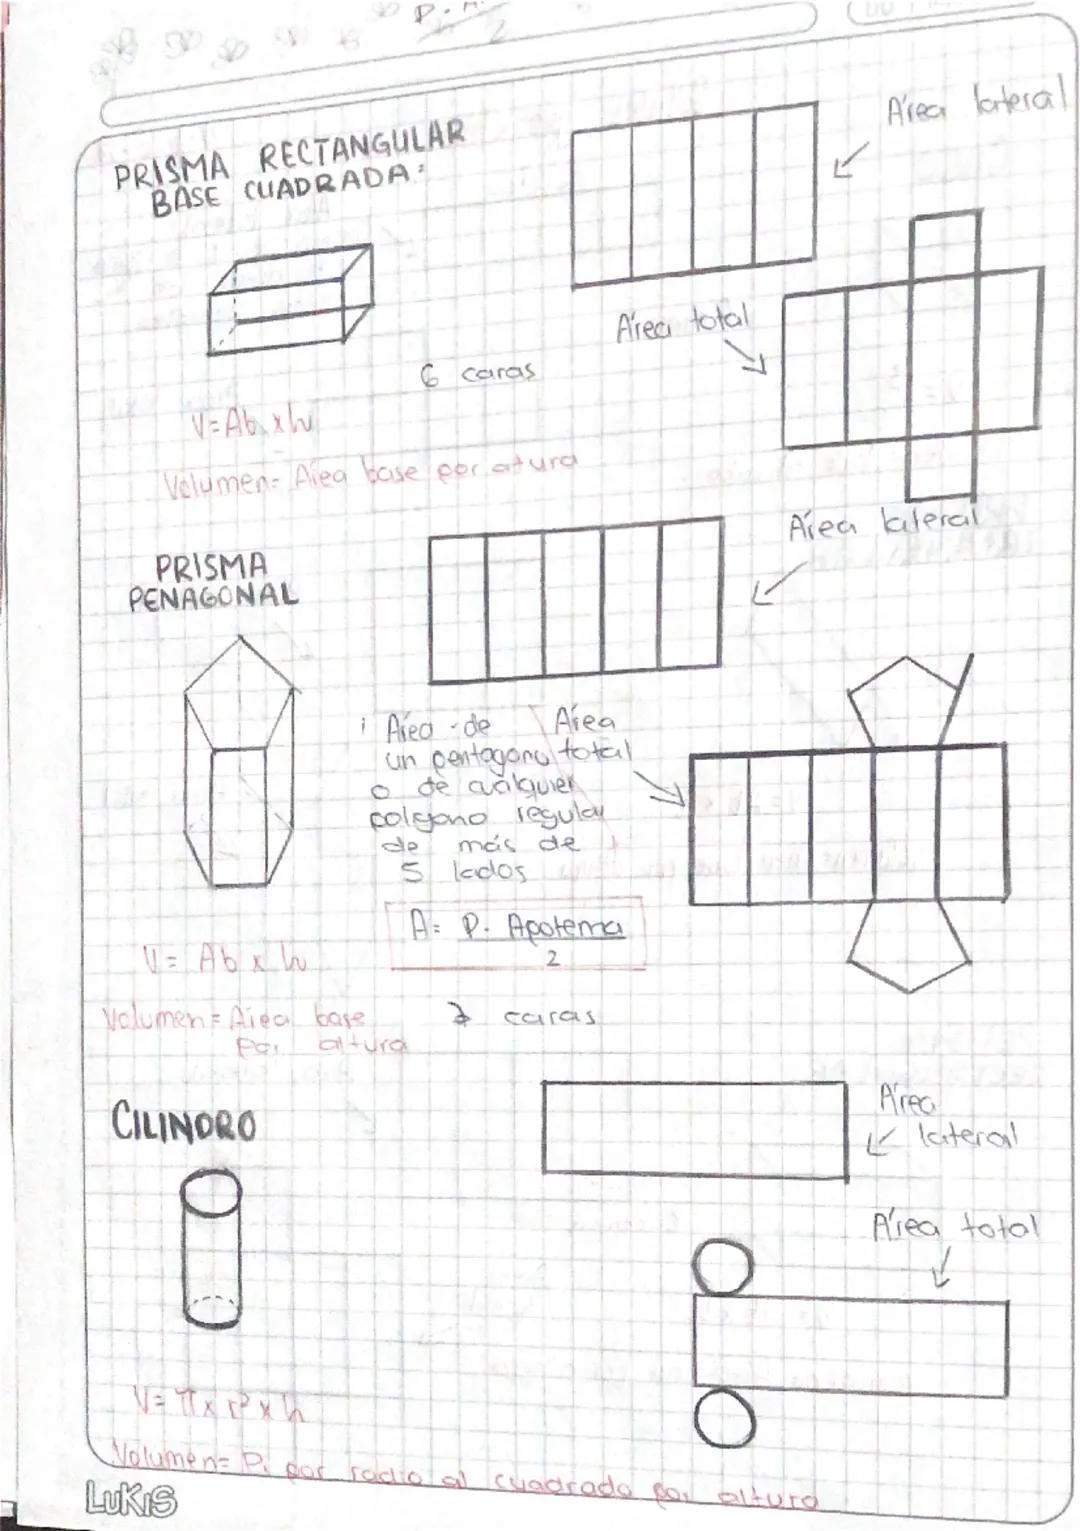 P. A
2
Área lateral
PRISMA RECTANGULAR
BASE CUADRADA:
Área total
6 caras
V=Ab x h
Volumen= Área base por atura
Área lateral
PRISMA
PENAGONAL
Área de
un pentagono
o de cualquier
polgono regular
de más de
5 lados
Área
total
A= P. Apotema
2
V= Ab x h
Volumen= Área base
por altura
7 caras
CILINDRO
Área
lateral
Área total
V= π x r² x h
Volumen= Pi por radio al cuadrado por altura
LUKIS